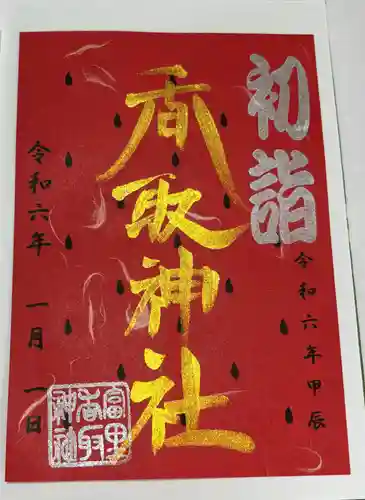 初詣
令和六年甲辰
香取神社
令和六年 一月 一日
富里
香取
神社